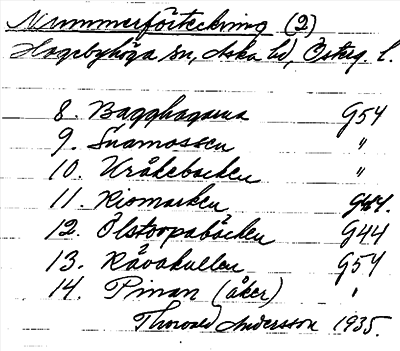 Nummerförteckning (2)
Hagebyhöga sn, Aska hd, Österg. l.
8. Bagghagarna G54
9. Snamossen "
10. Kråkebacken "
11. Rismarken G44.
12. Ölstorpabäcken G44
13. Rävakullen G54
14. Pinan (åker) "
Thorvald Andersson 1935.